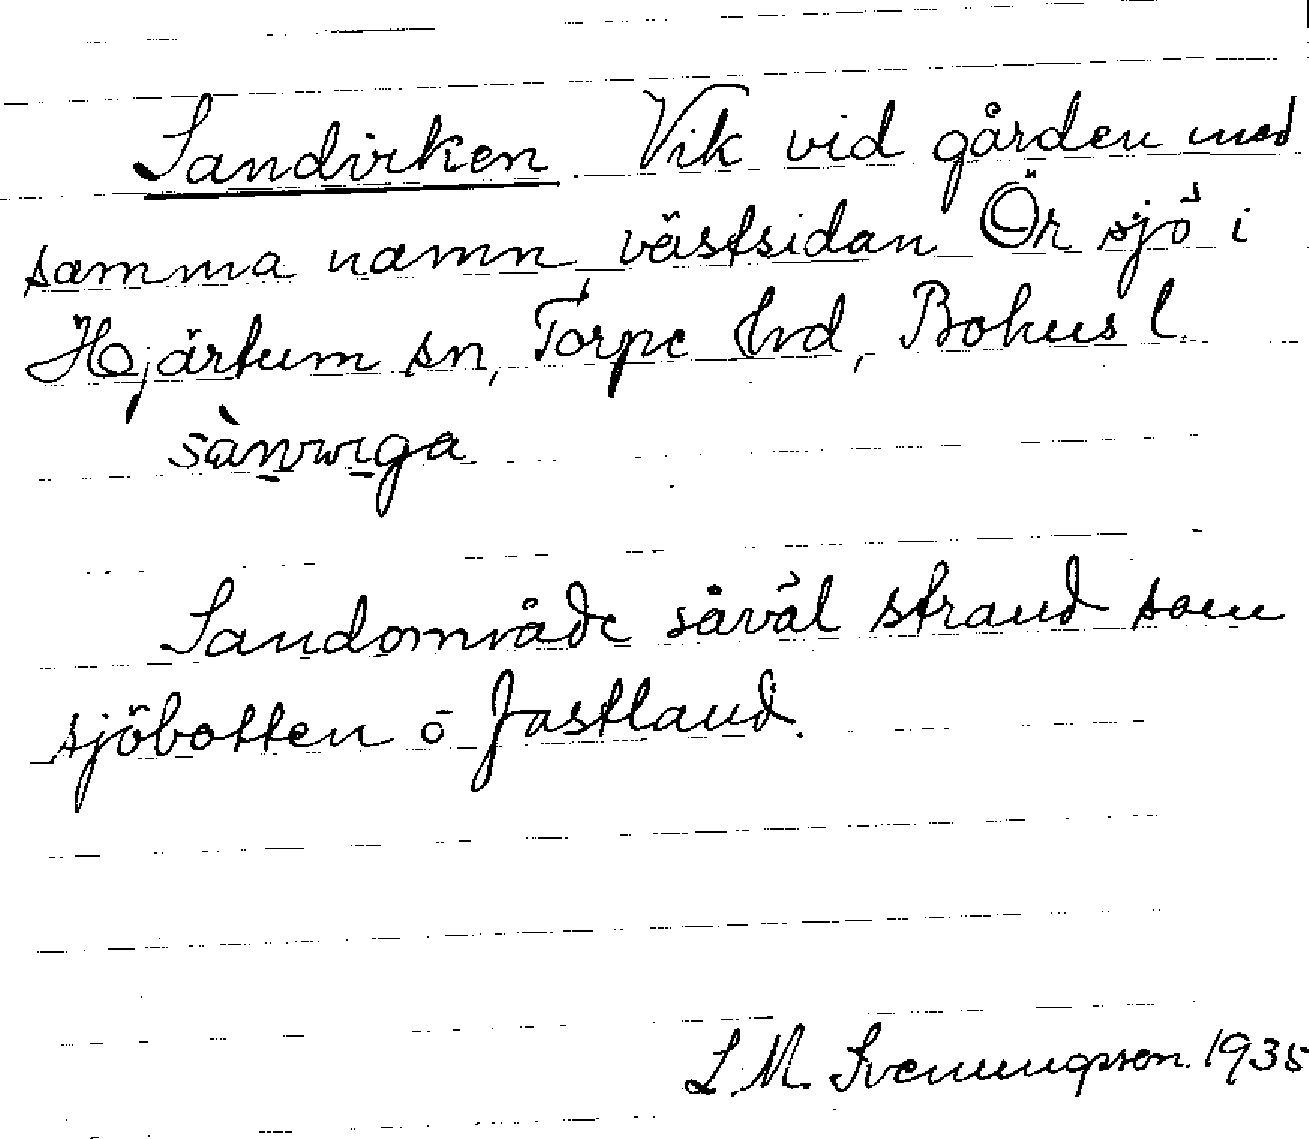 Sandviken Vik vid gården med
samma namn, västsidan Örsjö i
Hjärtum sn, Torpe hrd, Bohusl.
sànvıga
Sandområde såväl strand som
sjöbotten o fastland.
L. M. Svenungsson 1935